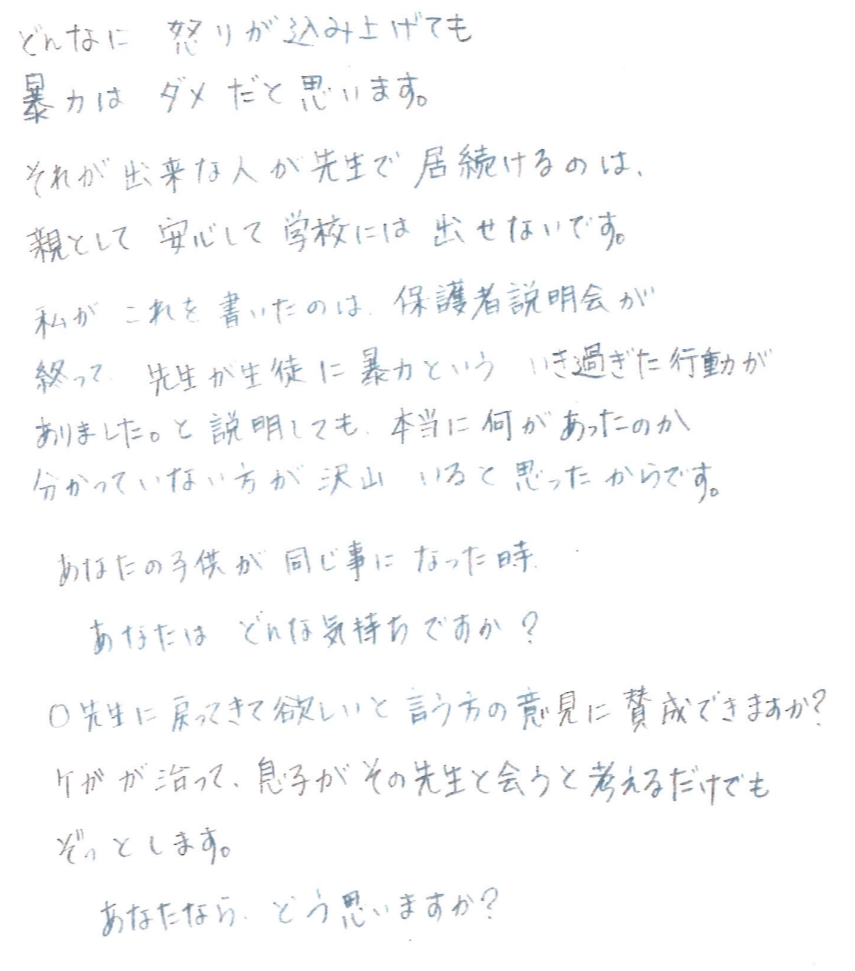 どんなに 怒りが込み上げても
暴力は ダメだと思います。
それが出来な人が先生で居続けるのは、
親として 安心して学校には 出せないです。
私が これを書いたのは、保護者説明会が
終って、先生が生徒に暴力という いき過ぎた行動が
ありました。と説明しても、本当に何があったのか
分かっていない方が沢山 いると思ったからです。
あなたの子供が 同じ事に なった時、
あなたは どんな気持ちですか？
○先生に戻ってきて欲しいと言う方の意見に賛成できますか？
ケガが治って、息子がその先生と会うと考えるだけでも
ぞっとします。
あなたなら、どう思いますか？